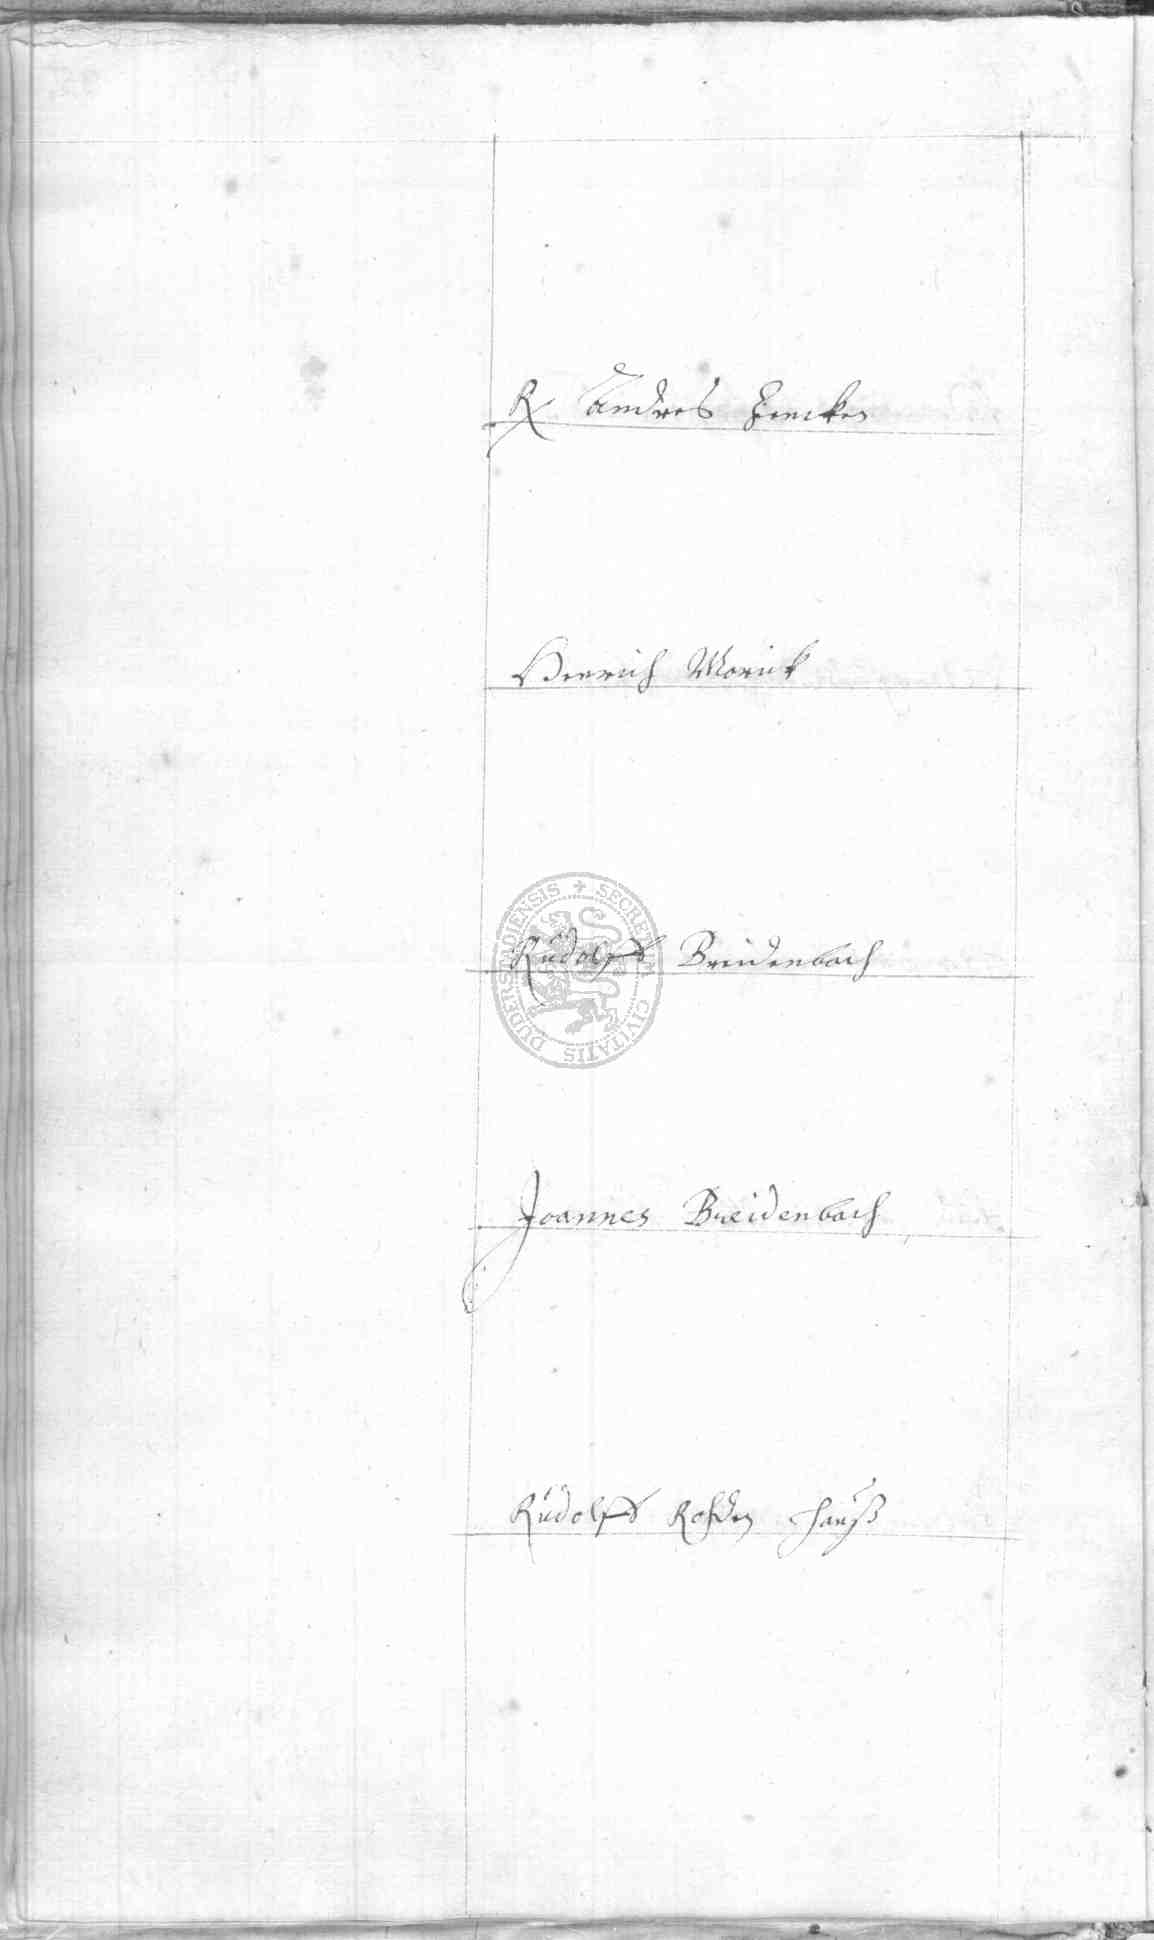 R Andres
Henrich Morick
Rudolff Breidenbach
SECRETUM CIVITATIS DUDERSTADIENSIS
Joannes Breidenbach
Rudolff hauß